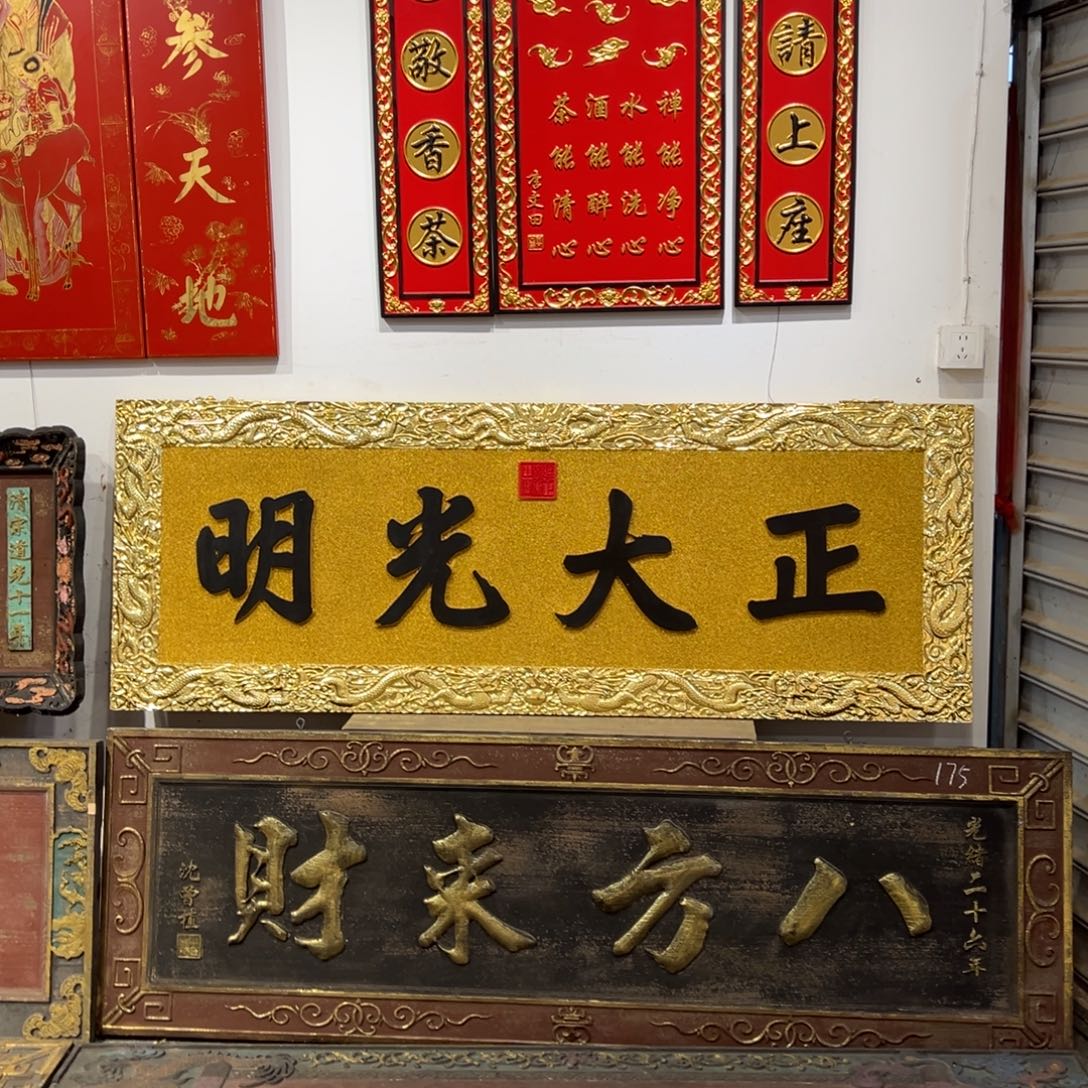 参天地
請上座
禅能净心
水能洗心
酒能醉心
茶能清心
李文田
敬香茶
正大光明
清宗道光十一年
175
光緒二十六年
八方来財
沈曾植